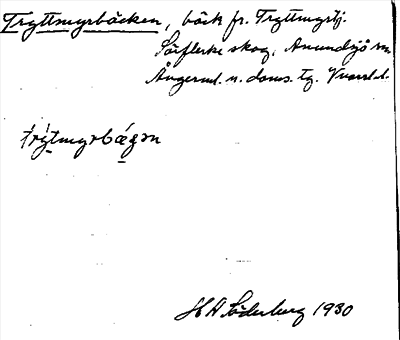 Tryttmyrbäcken, bäck fr. Tryttmyrtj.
Sörflerke skog, Anundsjö sn
Ångerml. n. doms. tg. Västl.
trýtmyrbæ̀gən
H A Söderberg 1930